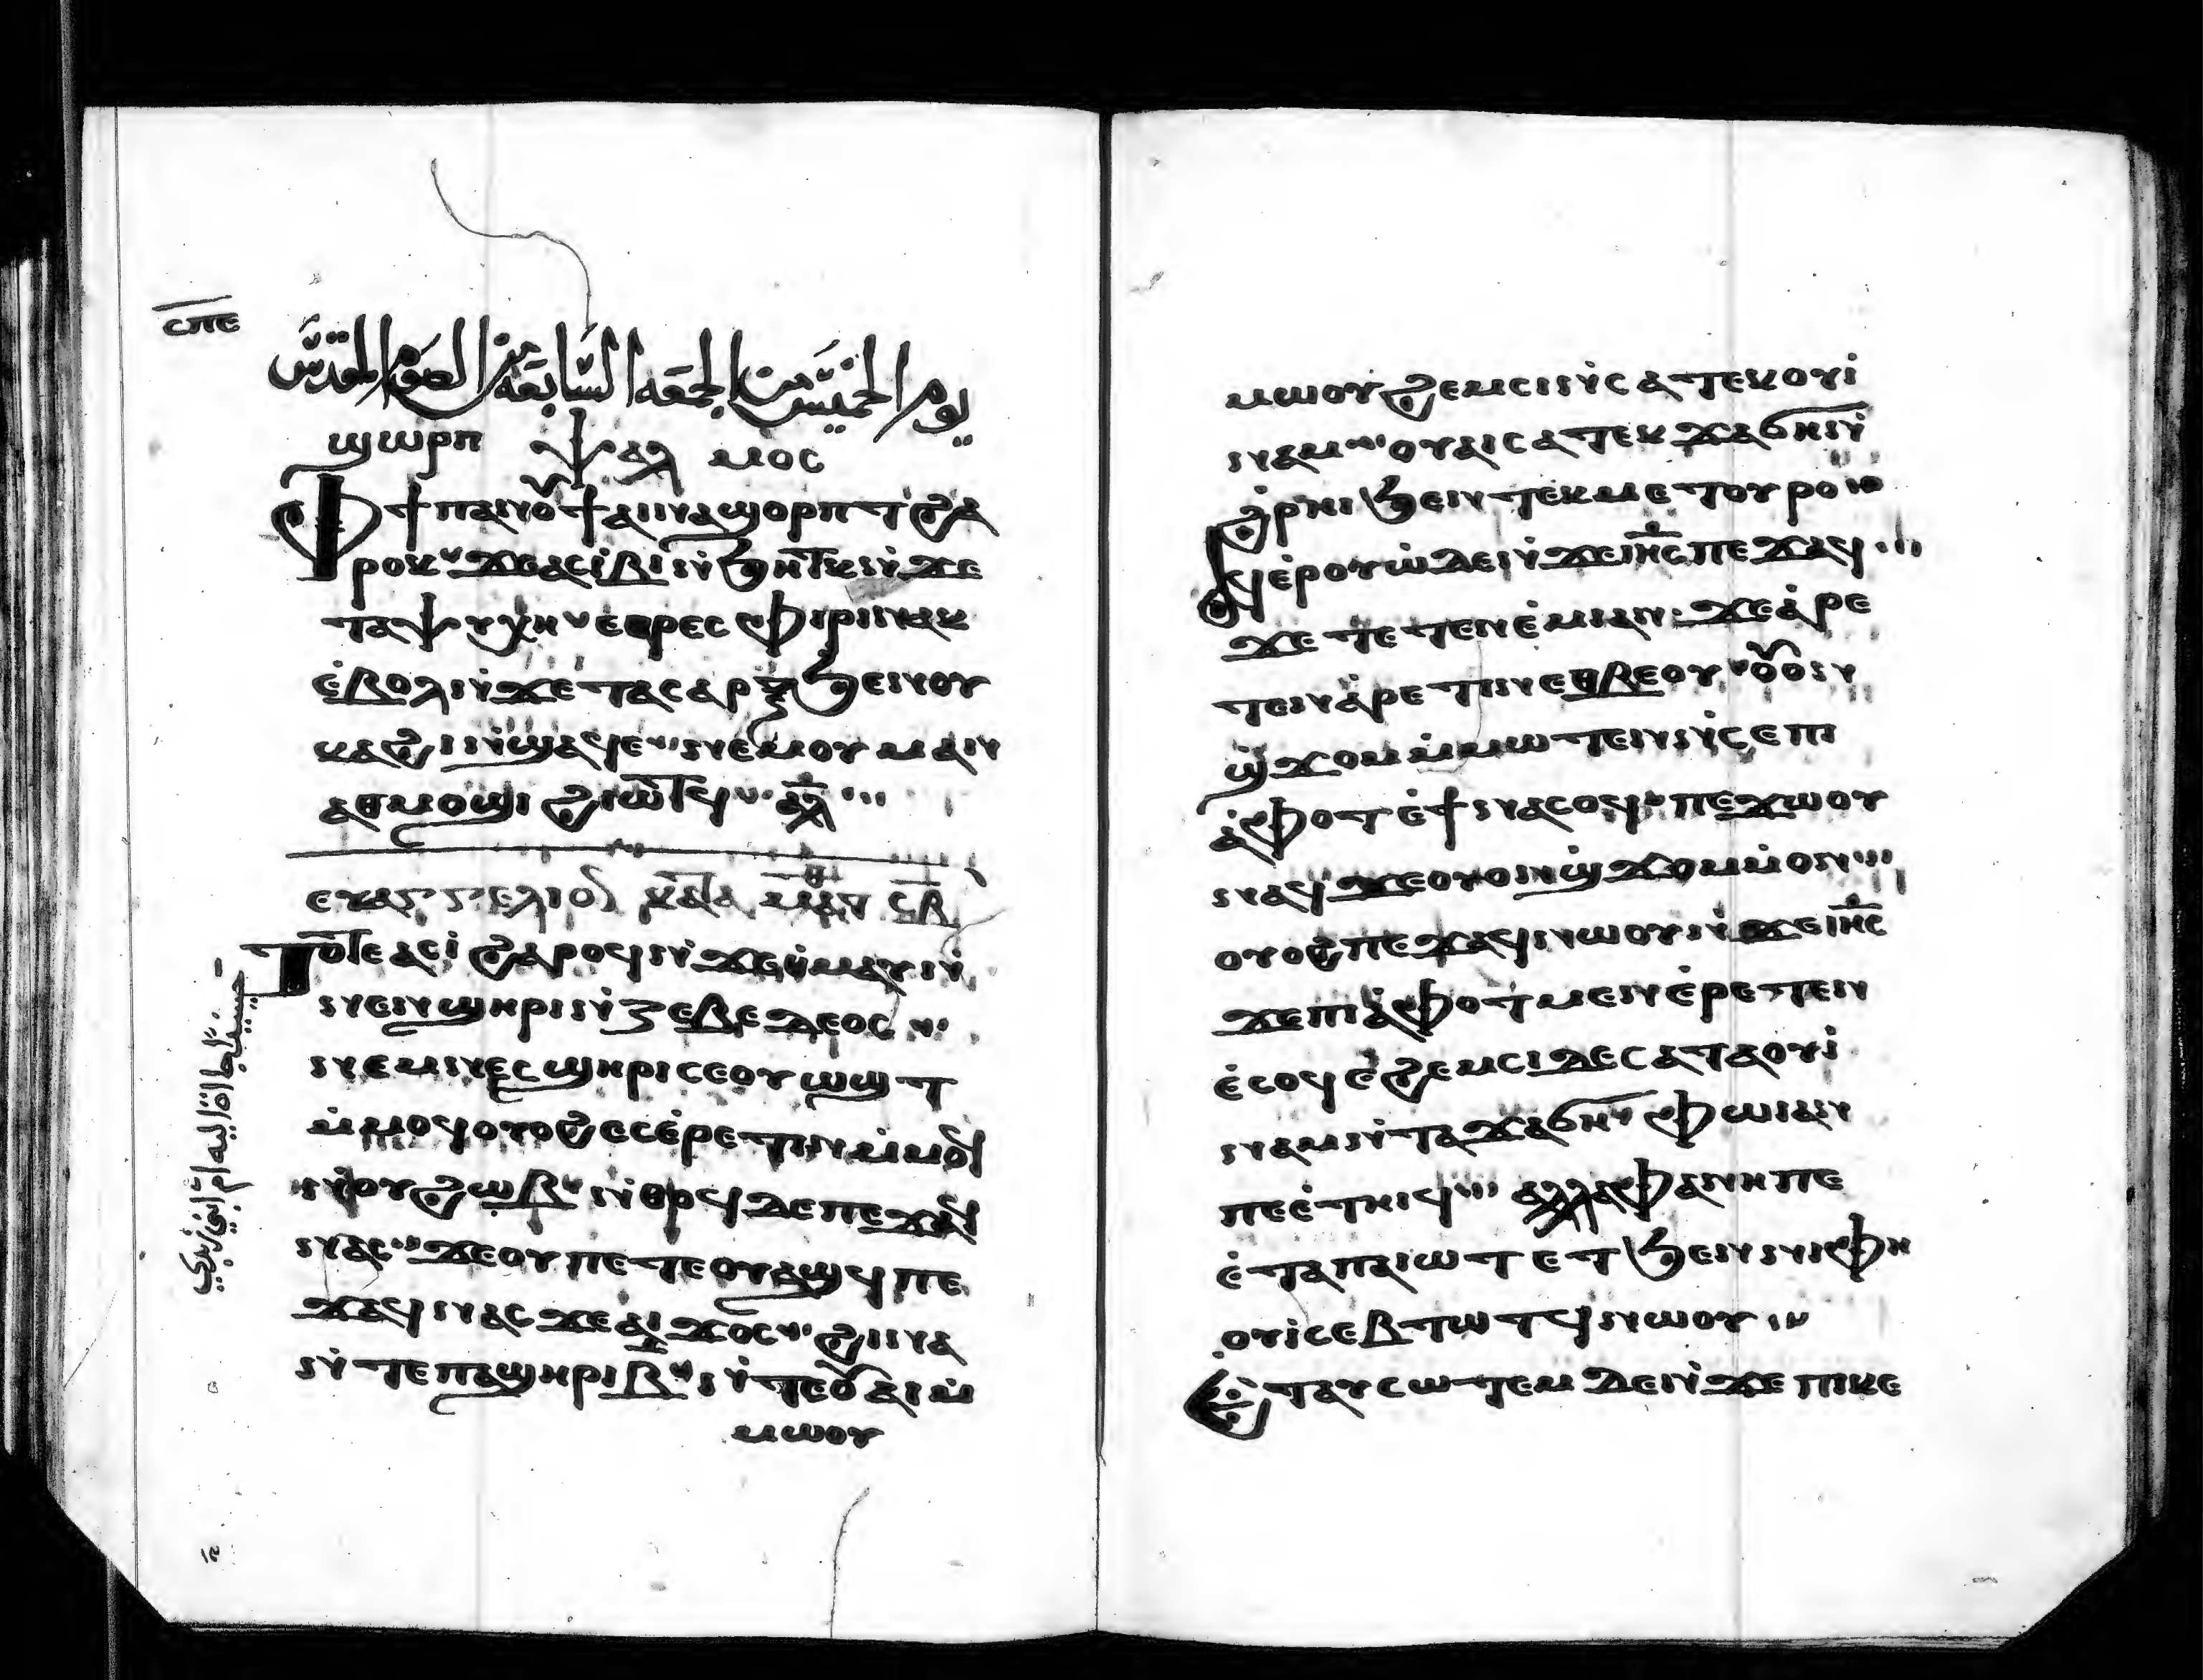 ⲥⲡⲉ
يوم الخميس من الجمعه السابعه من الصوم المقدس
ϣⲱⲣⲡ ⲯⲁⲗⲙⲟⲥ
ⲫϯ ⲡⲁⲛⲟⲩϯ ⲁⲓⲛⲁϣⲟⲣⲡⲧ ϩⲁ
ⲣⲟⲕ ϫⲉ ⲁⲥⲓⲃⲓ ⲛ̇ϧⲏⲧⲕ ⲛ̇ϫⲉ
ⲧⲁⲯⲩⲭⲏ ⲉⲑⲣⲉⲥⲫⲓⲣⲓ ⲛⲁⲕ
ⲉ̇ⲃⲟⲗ ⲛ̇ϫⲉ ⲧⲁⲥⲁⲣⲝ ϧⲉⲛ ⲟⲩ
ⲕⲁϩⲓ ⲛ̇ϣⲁϥⲉ ⲛⲉⲙ ⲟⲩⲙⲁⲛ
ⲁⲑⲙⲟϣⲓ ϩⲓⲱⲧϥ ⲁⲗ
ⲉⲩⲁⲅⲅⲉⲗⲓⲟⲛ ⲕⲁⲧⲁ ⲙⲁⲧⲑ ⲥⲃ
ⲧⲟⲧⲉ ⲁⲥⲓ̇ ϩⲁⲣⲟϥ ⲛ̇ϫⲉ ⲑ̇ⲙⲁⲩ ⲛ̇
ⲛⲉⲛϣⲏⲣⲓ ⲛ̇ⲍⲉⲃⲉⲇⲉⲟⲥ
ⲛⲉⲙ ⲛⲉⲥϣⲏⲣⲓ ⲥⲉⲟⲩⲱϣⲧ
ⲙ̇ⲙⲟϥ ⲟⲩⲟϩ ⲉⲥⲉ̇ⲣⲉⲧⲓⲛ ⲙ̇ⲙⲟϥ
ⲛ̇ⲟⲩϩⲱⲃ ⲛ̇ⲑⲟϥ ⲇⲉ ⲡⲉϫⲁϥ
ⲛⲁⲥ ϫⲉ ⲟⲩ ⲡⲉⲧⲉⲟⲩⲁϣϥ ⲡⲉ
ϫⲁϥ ⲛⲁⲥ ϫⲉ ⲁϫⲟⲥ ϩⲓⲛⲁ
ⲛ̇ⲧⲉ ⲡⲁϣⲏⲣⲓ ⲃ ⲛ̇ⲧⲉ ⲟⲩⲁⲓ ⲙ̇
ⲙⲱⲟⲩ
ⲙⲱⲟⲩ ϩⲉⲙⲥⲓ ⲛ̇ⲥⲁ ⲧⲉⲕⲟⲩⲓ̇
ⲛⲁⲙ ⲟⲩⲁⲓ ⲥⲁ ⲧⲉⲕϫⲁϭⲏ ⲛ̇
ϩ̇ⲣⲏⲓ ϧⲉⲛ ⲧⲉⲕⲙⲉⲧⲟⲩⲣⲟ
ⲁϥⲉ̇ⲣⲟⲩⲱ̇ ⲇⲉ ⲛ̇ϫⲉ ⲓⲏⲥ ⲡⲉϫⲁϥ
ϫⲉ ⲧⲉⲧⲉⲛⲉ̇ⲙⲓ ⲁⲛ ϫⲉ ⲁ̇ⲣⲉ
ⲧⲉⲛⲁ̇ⲣⲉⲧⲓⲛ ⲉⲑⲃⲉ ⲟⲩ ⲟⲩⲟⲛ
ϣ̇ϫⲟⲙ ⲙ̇ⲙⲱⲧⲉⲛ ⲛ̇ⲥⲉ ⲡⲓ
ⲁ̇ⲫⲟⲧ ⲉ̇ϯⲛⲁⲥⲟϥ ⲡⲉϫⲱⲟⲩ
ⲛⲁϥ ϫⲉ ⲟⲩⲟⲛϣ̇ϫⲟⲙ ⲙ̇ⲙⲟⲛ
ⲟⲩⲟϩ ⲡⲉϫⲁϥ ⲛⲱⲟⲩ ⲛ̇ϫⲉ ⲓⲏⲥ
ϫⲉ ⲡⲓⲁ̇ⲫⲟⲧ ⲙⲉⲛ ⲉ̇ⲣⲉⲧⲉⲛ
ⲉ̇ⲥⲟϥ ⲉ̇ϩⲉⲙⲥⲓ ⲇⲉ ⲥⲁ ⲧⲁⲟⲩⲓ̇
ⲛⲁⲙ ⲛ̇ⲧⲁϫⲁϭⲏ ⲫⲱⲓ ⲁⲛ
ⲡⲉ ⲉ̇ⲧⲏⲓϥ ⲁⲗⲗⲁ ⲫⲁⲛⲏ ⲡⲉ
ⲉ̇ⲧⲁ ⲡⲁⲓⲱⲧ ⲉⲧϧⲉⲛ ⲛⲓⲫⲏ
ⲟⲩⲓ̇ ⲥⲉⲃⲧⲱⲧϥ ⲛⲱⲟⲩ
ⲉ̇ⲧⲁⲩⲥⲱⲧⲉⲙ ⲇⲉ ⲛ̇ϫⲉ ⲡⲓⲕⲉ